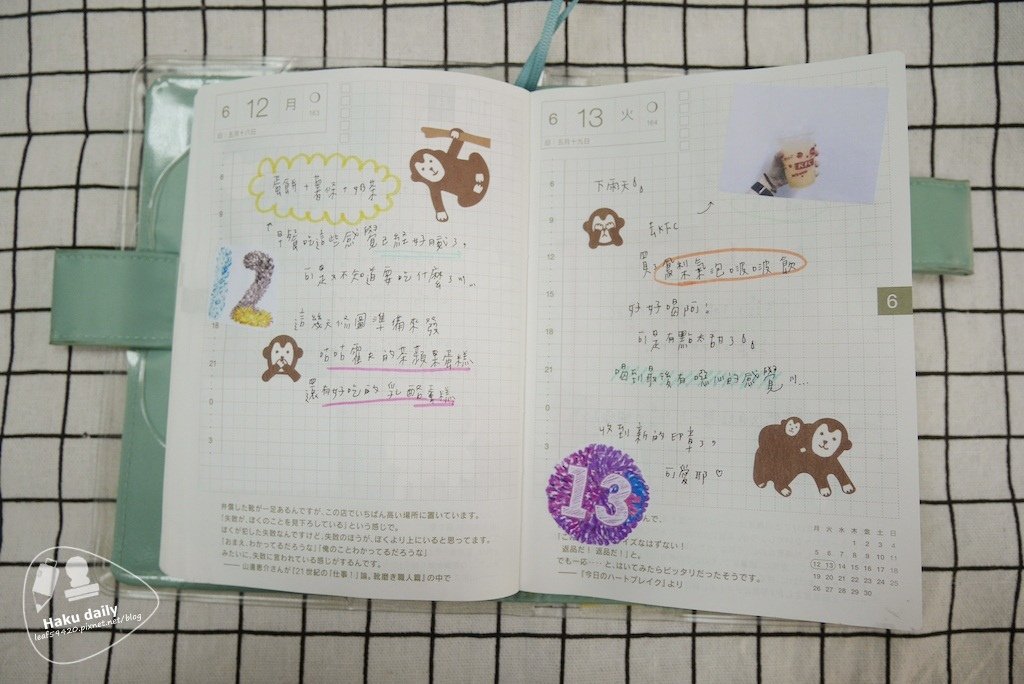 6 12 月
163
旧 五月十八日
蛋餅+薯條+奶茶
早餐吃這些感覺已經好膩了。
可是又不知道要吃什麼了
12
這幾天修圖準備來發
咕咕霍夫的茶蘋果蛋糕
還有好吃的乳酪蛋糕
6
9
12
18
21
0
3
弁償した靴が一足あるんですが、この店でいちばん高い場所に置いています。
「失敗が、ぼくのことを見下ろしている」という感じで。
ぼくが犯した失敗なんですけど、失敗のほうが、ぼくより上にいると思ってます。
「おまえ、わかってるだろうな」「俺のことわかってるだろうな」
みたいに、失敗に言われている感じがするんです。
——山邊恵介さんが『21世紀の「仕事!」論。靴磨き職人篇』の中で
6 13 火
164
旧 五月十九日
KFC
下雨天
去KFC
買了
氣泡啵啵飲
好好喝阿!
可是有點太甜了
喝到最後有噁心的感覺
收到新的印章了。
可愛耶♡
6
9
12
15
18
21
0
3
13
6
んで、
ズなはずない!
返品だ! 返品だ!」と。
でも一応……と、はいてみたらピッタリだったそうです。
——『今日のハートブレイク』より
月 火 水 木 金 土 日
1 2 3 4
5 6 7 8 9 10 11
12 13 14 15 16 17 18
19 20 21 22 23 24 25
26 27 28 29 30
Haku daily
leaf59420.pixnet.net/blog